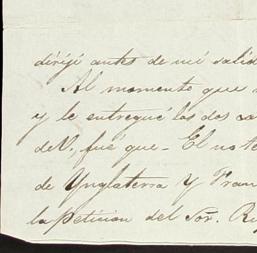 dirijí antes de mi salid
Al momento que
y le entregué los dos
de V. fué que - El no te
de Ynglaterra y Fran
la peticion del Sor.